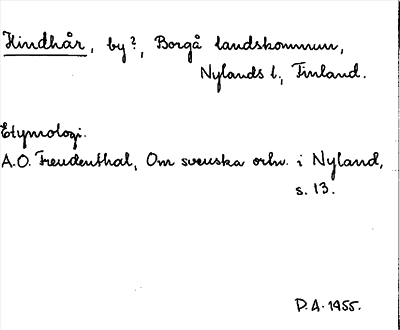 Hindhår, by?, Borgå landskommun,
Nylands l., Finland.
Etymologi.
A.O. Freudenthal, Om svenska ortn. i Nyland,
s. 13.
P.A. 1955.